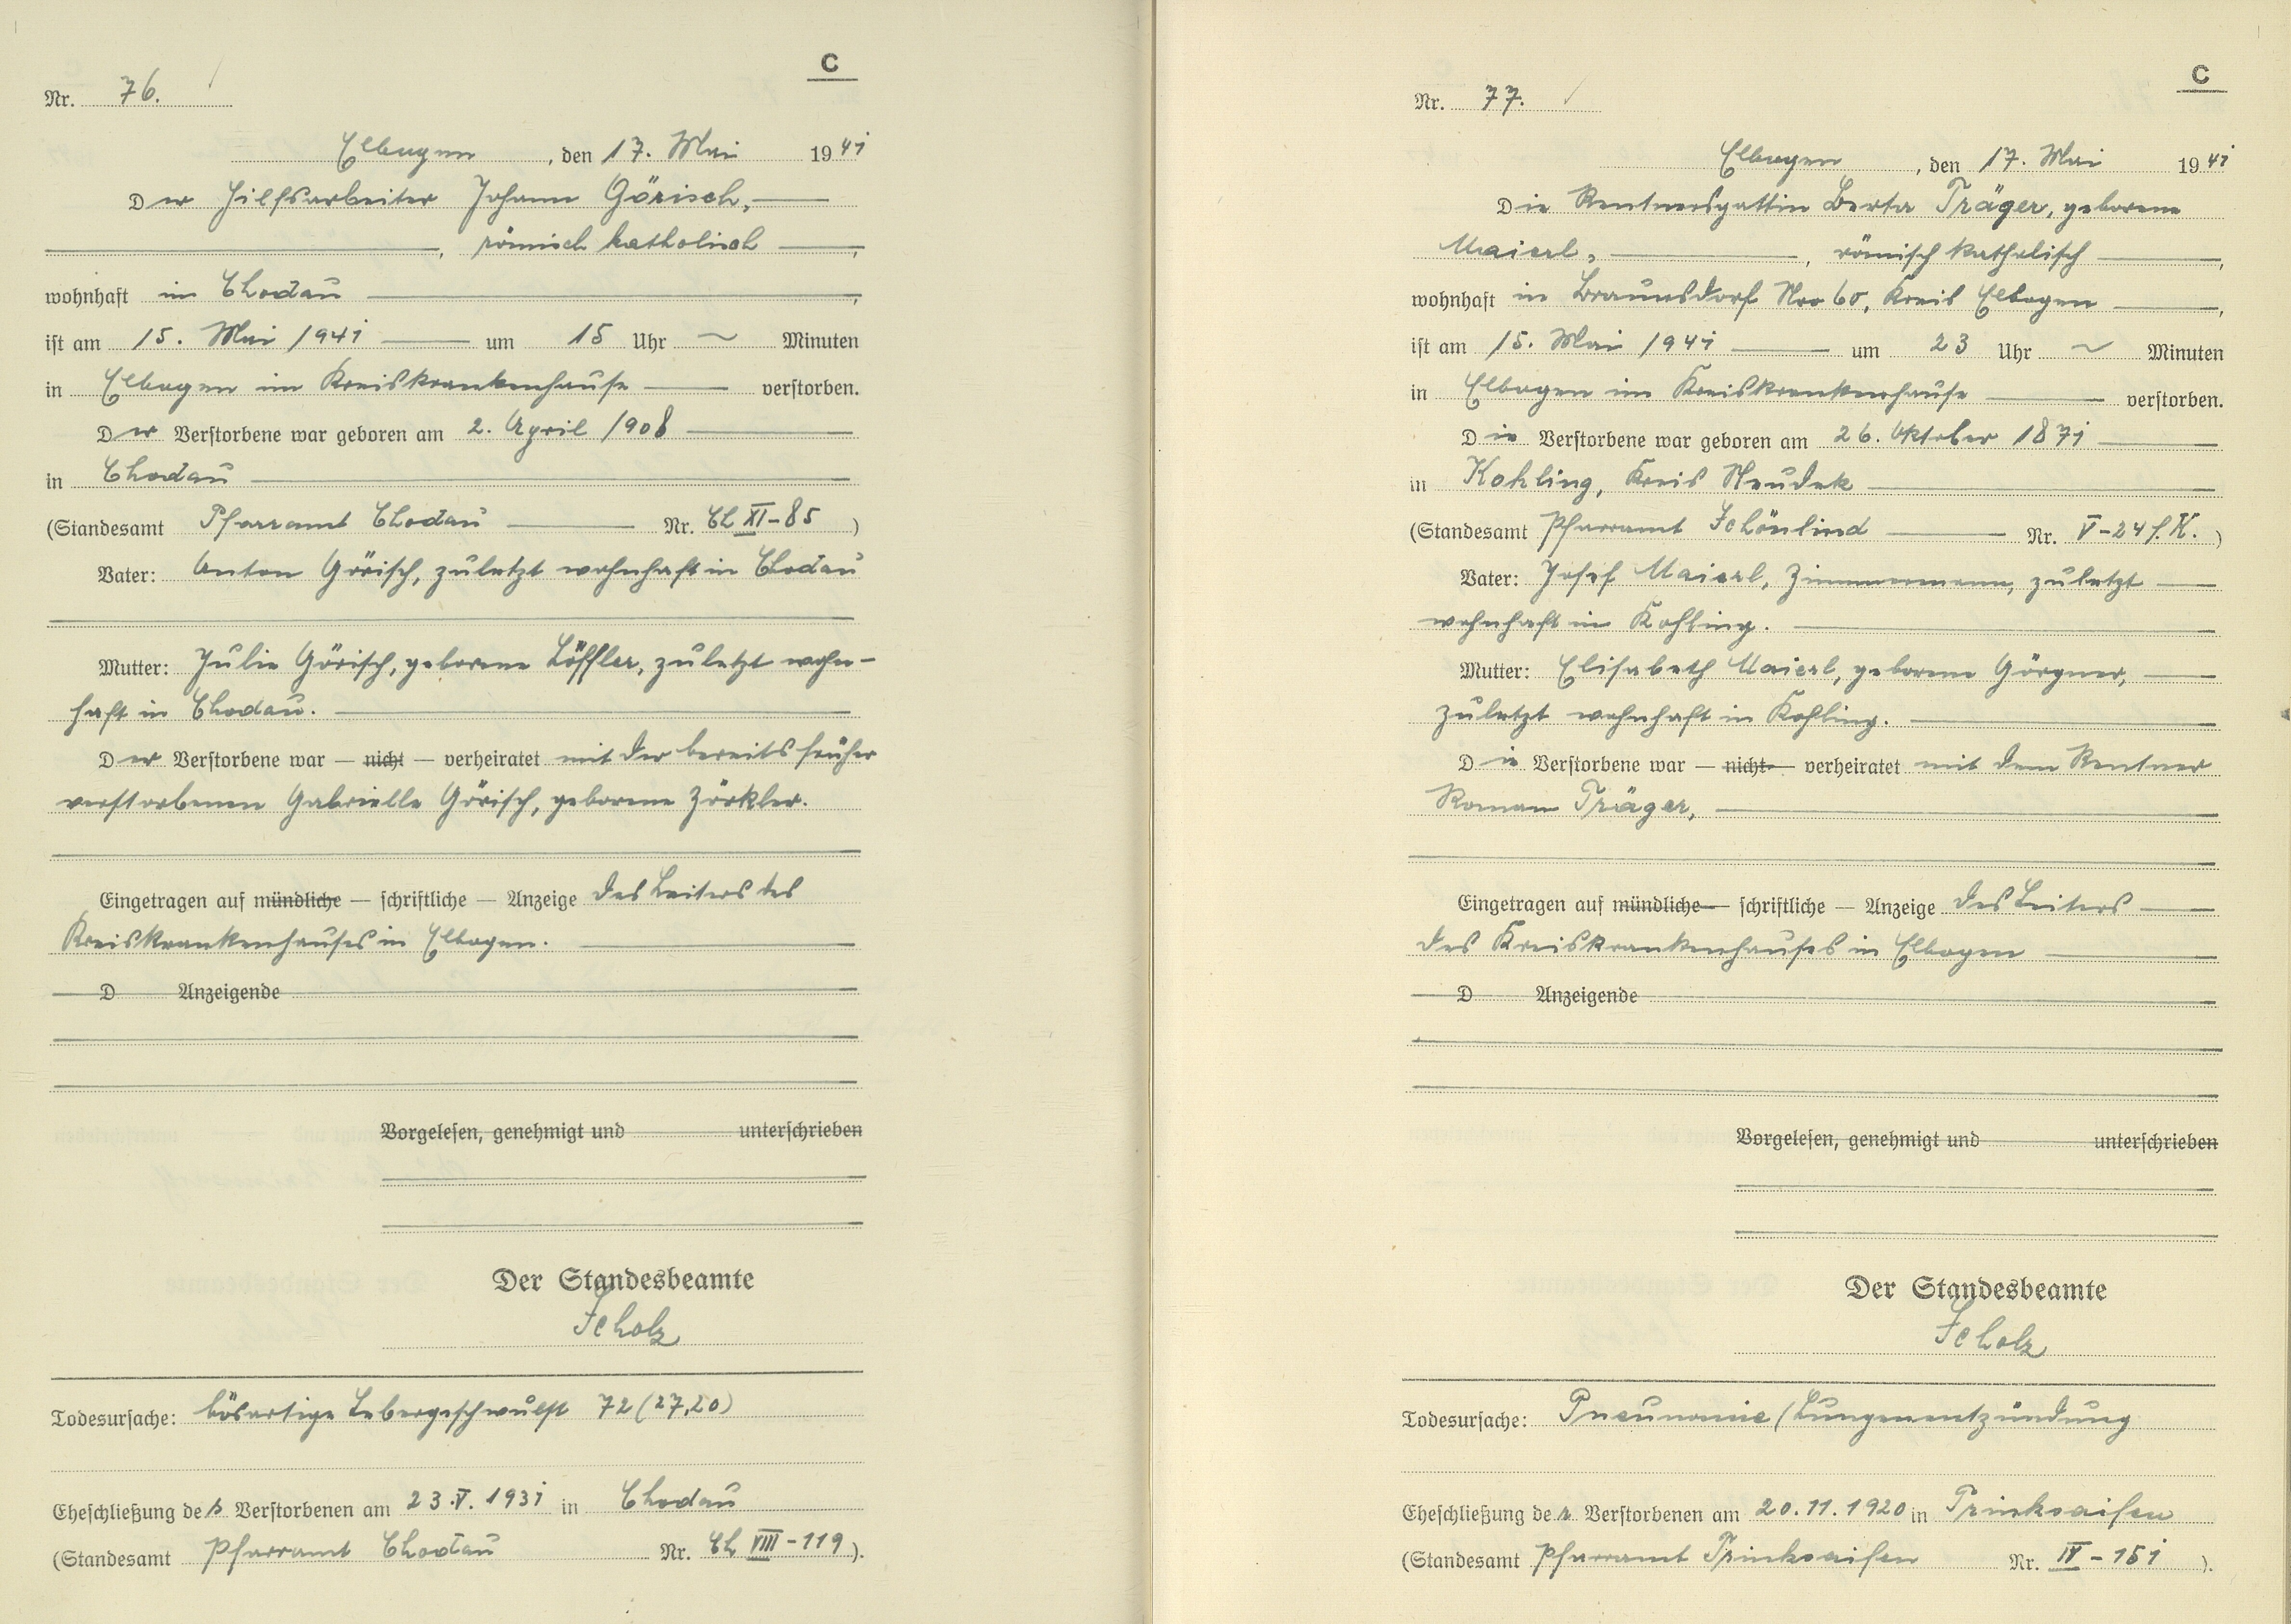 C
Nr. 76.
Elbogen, den 17. Mai 1941
Der Hilfsarbeiter Johann Görisch,
, römisch katholisch ,
wohnhaft in Chodau ,
ist am 15. Mai 1941 um 15 Uhr ~ Minuten
in Elbogen im Kreiskrankenhause verstorben.
Der Verstorbene war geboren am 2. April 1908
in Chodau
(Standesamt Pfarramt Chodau Nr. Ch XI-85 )
Vater: Anton Görisch, zuletzt wohnhaft in Chodau
Mutter: Julie Görisch, geborene Löffler, zuletzt wohn-
haft in Chodau.
Der Verstorbene war — nicht — verheiratet mit der bereits früher
verstorbenen Gabrielle Görisch, geborene Zörkler.
Eingetragen auf mündliche — schriftliche — Anzeige des Leiters des
Kreiskrankenhauses in Elbogen.
D Anzeigende
Vorgelesen, genehmigt und unterschrieben
Der Standesbeamte
Scholz
Todesursache: bösartige Lebergeschwulst 72 (27,20)
Eheschließung des Verstorbenen am 23.V.1931 in Chodau
(Standesamt Pfarramt Chodau Nr. Ch VIII-119 ).
C
Nr. 77.
Elbogen, den 17. Mai 1941
Die Rentnersgattin Berta Träger, geborene
Maierl, , römisch katholisch ,
wohnhaft in Braunsdorf Nro 60, Kreis Elbogen ,
ist am 15. Mai 1941 um 23 Uhr ~ Minuten
in Elbogen im Kreiskrankenhause verstorben.
Die Verstorbene war geboren am 26. Oktober 1871
in Kohling, Kreis Neudek
(Standesamt Pfarramt Schönlind Nr. V-24 f. K. )
Vater: Josef Maierl, Zimmermann, zuletzt
wohnhaft in Kohling.
Mutter: Elisabeth Maierl, geborene Görgner,
zuletzt wohnhaft in Kohling.
Die Verstorbene war — nicht — verheiratet mit dem Rentner
Roman Träger,
Eingetragen auf mündliche — schriftliche — Anzeige des Leiters
des Kreiskrankenhauses in Elbogen
D Anzeigende
Vorgelesen, genehmigt und unterschrieben
Der Standesbeamte
Scholz
Todesursache: Pneunomie / Lungenentzündung
Eheschließung der Verstorbenen am 20.11.1920 in Trinksaifen
(Standesamt Pfarramt Trinksaifen Nr. IV-151 ).